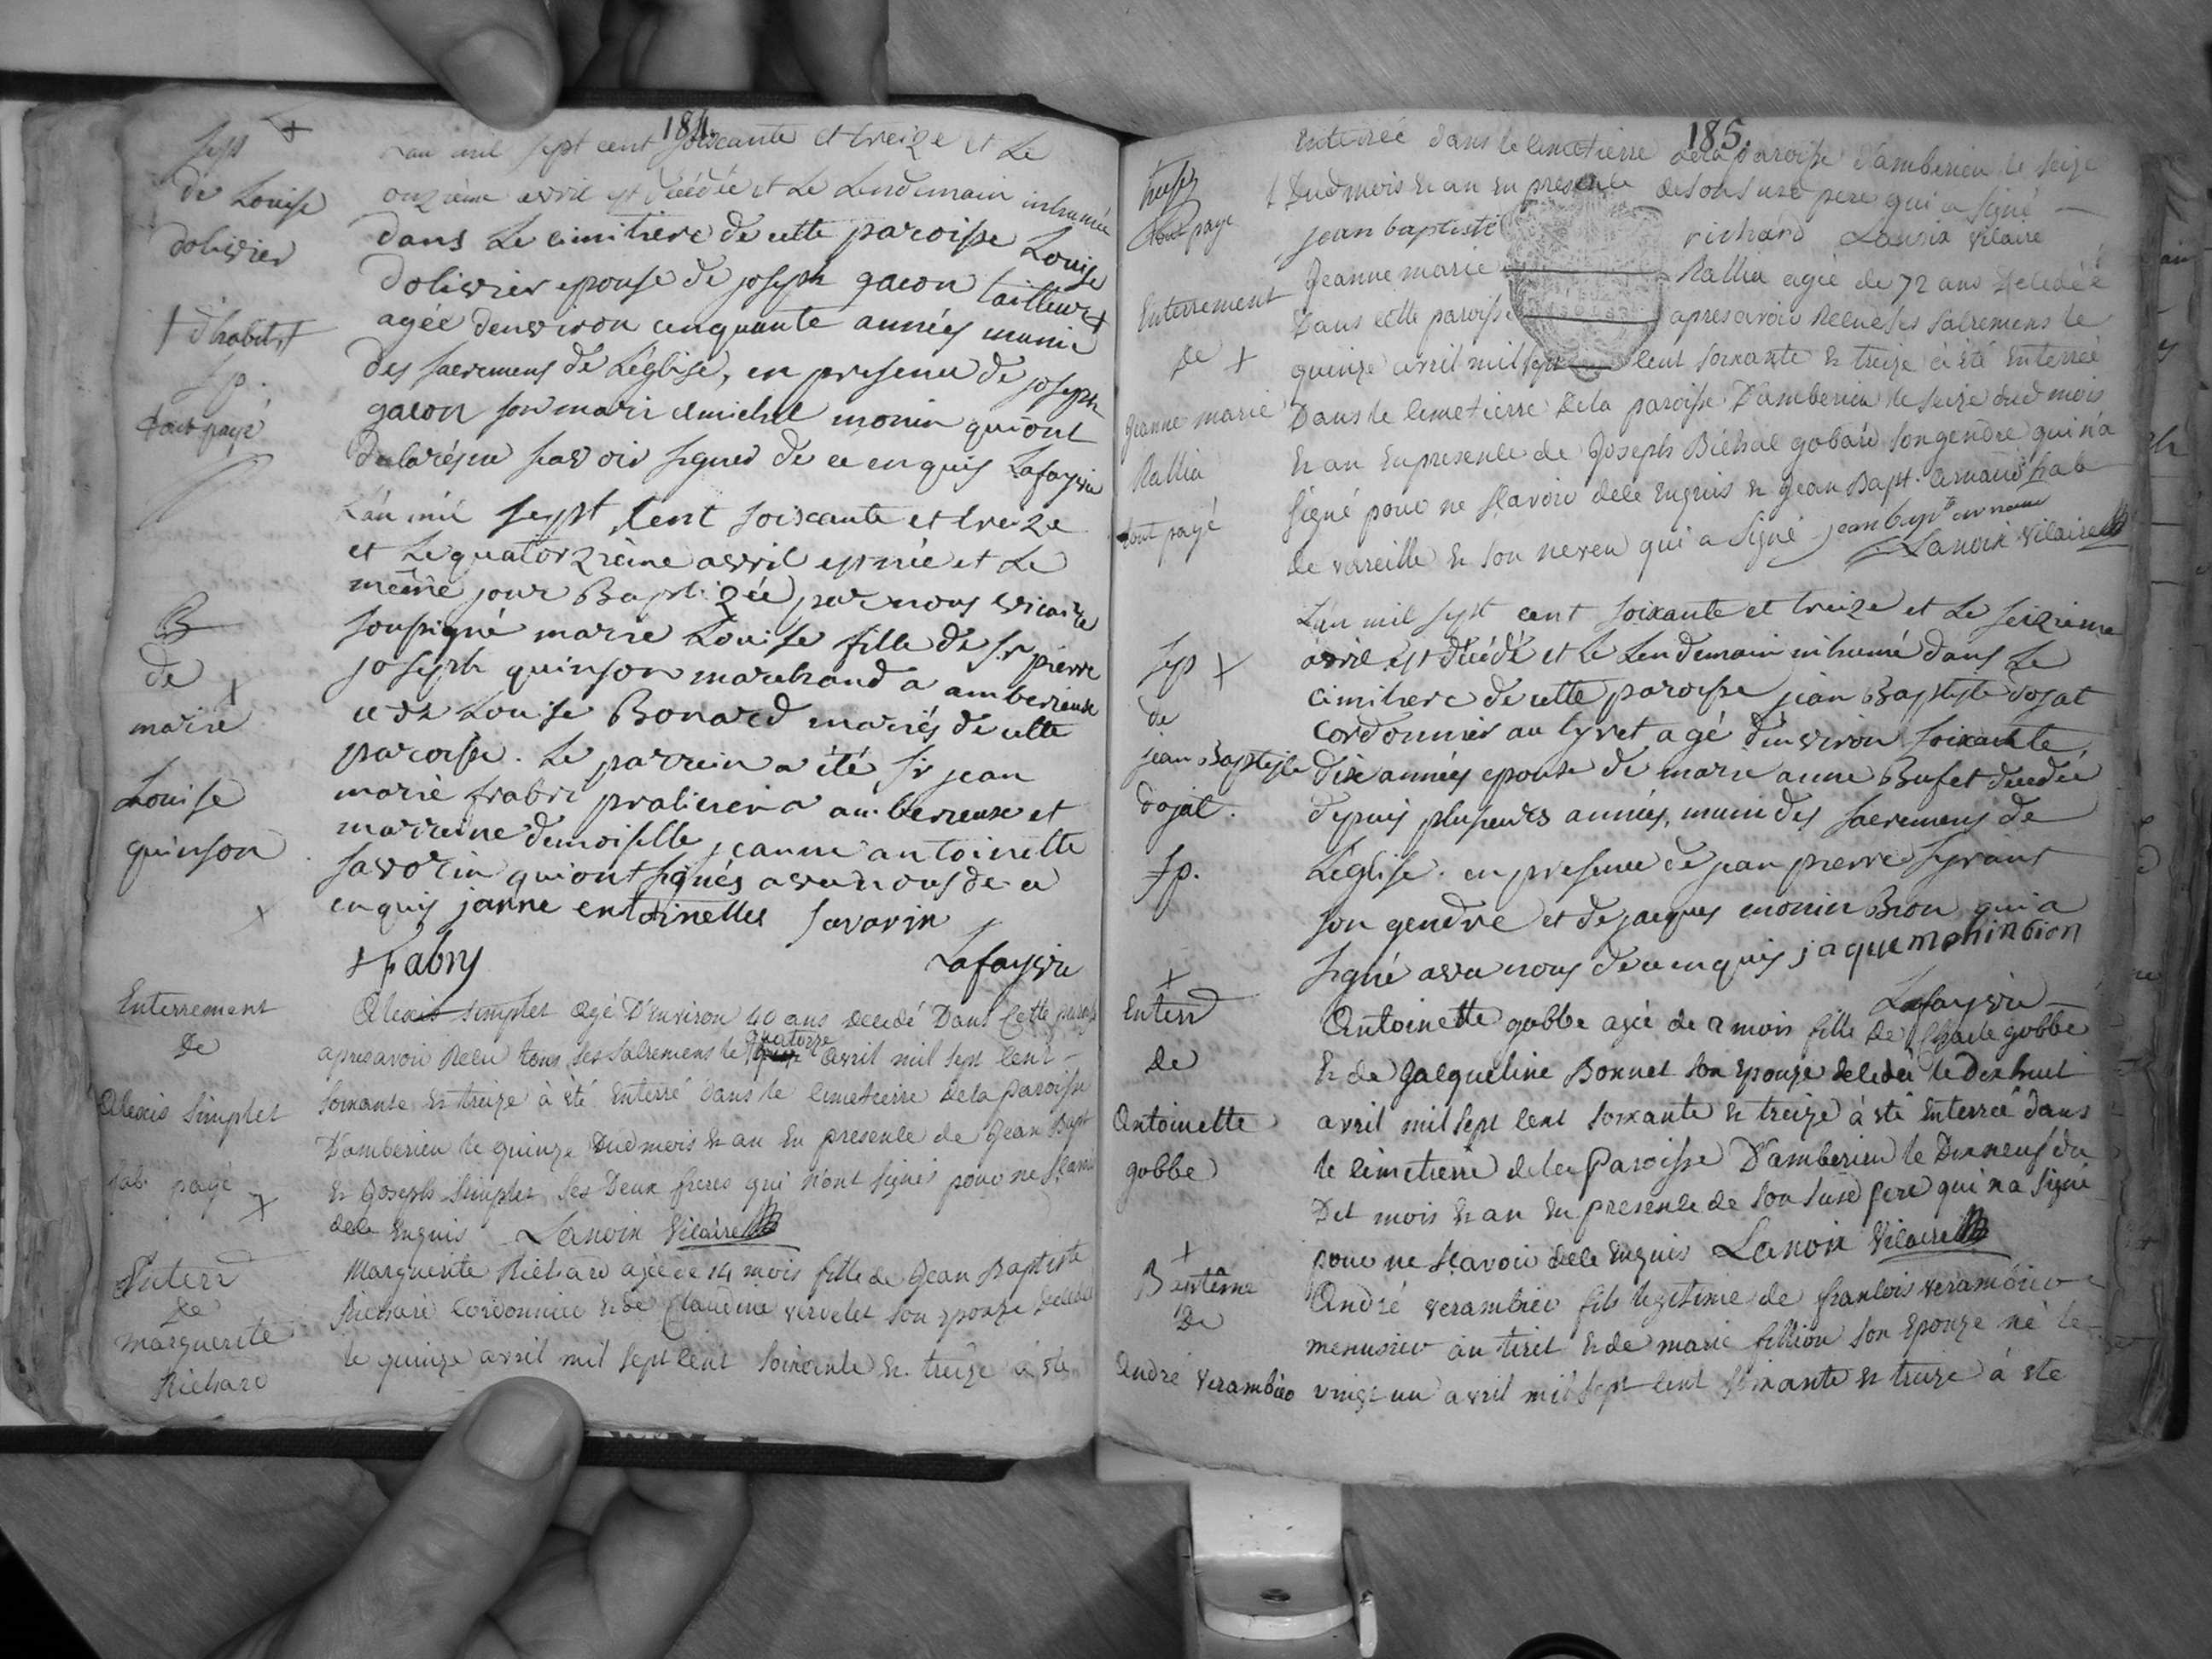 184.
Sep +
de Louise
dolivier
† d'habit †
Sp.
tout payé
L'an mil sept cent soiscante et treize et Le
onzieme avril est décédée et Le Lendemain inhumée
dans Le cimitiere de cette paroisse Louise
dolivier epouse de joseph gacon tailleur †
agée denviron cinquante années munie
des sacremens de L'église, en presence de joseph
gacon son mari et michel monin qui ont
declarés ne scavoir signer de ce enquis Lafay
B
de
marie
Louise
quinson
L'an mil sept cent soiscante et treize
et Le quatorzième avril est née et Le
même jour Baptizée par nous vicaire
soussigné marie Louise fille de sr pierre
joseph quinson marchand a amberieux
et de Louise Bonard mariés de cette
paroisse. Le parrein a été sr jean
marie frabri praticien a amberieux et
marreine demoiselle jeanne antoinette
savorin qui ont signés avec nous de ce
enquis janne entoinettes savarin
Fabry
Enterrement
de
Alexis Simplet
payé
+
Alexis simplet agé D'environ 40 ans decedé Dans Cette paroisse
apres avoir Recu tous ses Sacremens le quatorze avril mil sept cent
soixante & treize à été Enterré dans le cimetierre Dela paroisse
D'amberieu le quinze Dud mois & an En presence de Jean Bapt
& Joseph Simplet ses Deux freres qui n'ont signés pour ne Scavoir
dece Enquis Lanoix Vicaire
Enterr
de
marguerite
Richard
Marguerite Richard agée de 14 mois fille de Jean Baptiste
Richard Cordonnier & de Claudine vervelet son epouze decedée
le quinze avril mil sept cent soixante & treize à été
185.
tout paye
Enterrée dans le cimetierre dela paroisse d'amberieu le seize
Dud mois & an En presence de son susd pere qui a signé
jean baptiste richard Lanoix Vicaire
Enterrement
de +
Jeanne marie
Rallia
tout payé
Jeanne marie Rallia agée de 72 ans Decedée
Dans cette paroisse apres avoir Recue ses sacremens le
quinze avril mil sept cent soixante & treize à été Enterrée
Dans le cimetierre Dela paroisse D'amberieu le Seize dud mois
& an En presence de Joseph gobard son gendre qui n'a
signé pour ne Scavoir dece Enquis & Jean Bapt. arnaud hab
de vareille & son neveu qui a signé jean bapt
Lanoix Vicaire
Sep +
de
jean Baptiste
dojat.
Sp.
L'an mil sept cent soixante et treize et Le seizieme
avril est décédé et le Lendemain inhumé dans Le
cimitiere de cette paroisse jean Baptiste dojat
cordonnier au tyret agé d'environ soixante
dix années epoux de marie anne Bufet decedée
depuis plusieurs années, muni des sacremens de
L'église. en presence de jean pierre
son gendre et de jacques monin Bion qui a
signé avec nous de ce enquis jaque monin bion
+
Enterr
de
Antoinette
gobbe
Antoinette gobbe agée de 2 mois fille De Charle gobbe
& de Jacqueline Bonnet son Epouze decedée le Dix huit
avril mil sept cent soixante & treize à été Enterrée dans
le cimetierre dela Paroisse D'amberieu le Dix neuf du
Dit mois & an En presence de son Susd pere qui n'a signé
pour ne Scavoir dece Enquis Lanoix Vicaire
+
Baptême
De
André Verambier
André verambier fils legitime de francois verambier
menusier au tiret & de marie fillion son Epouze né le
vingt un avril mil sept cent soixante & treize à été